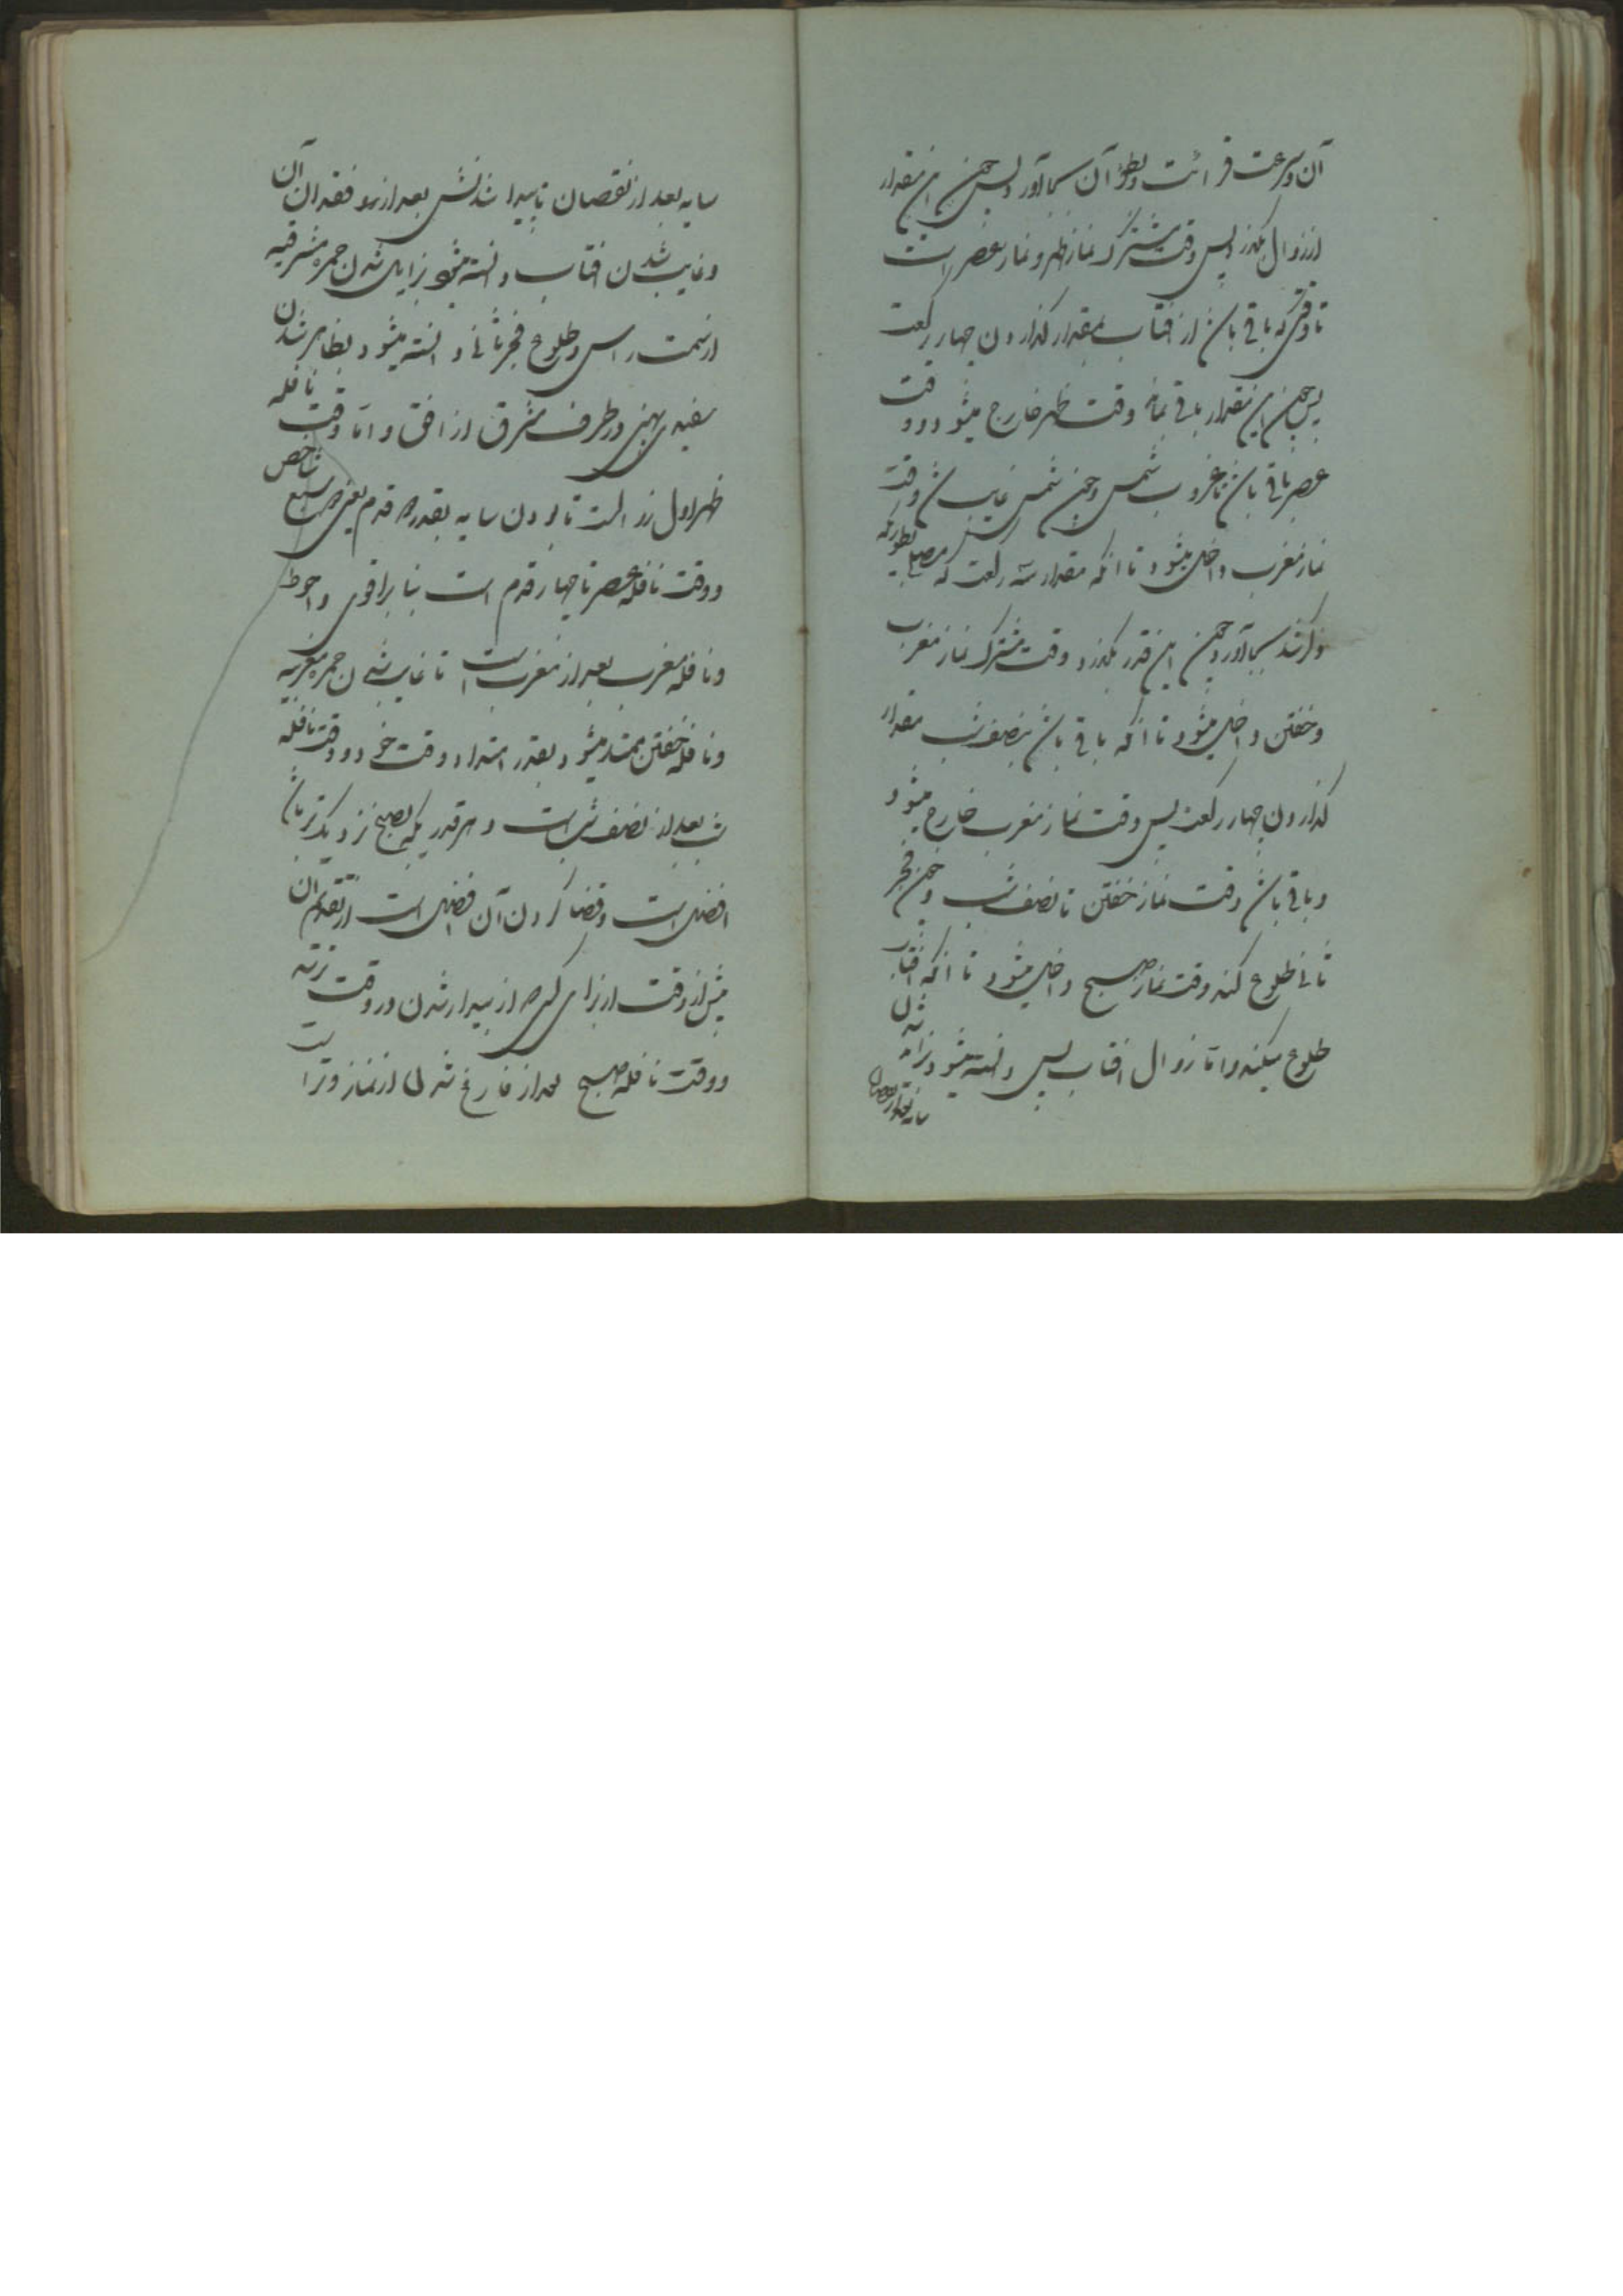 آن و سرعت قرائت و بطؤ آن بجا آورد پس چون این مقدار
از زوال بگذرد پس وقت مشترک نماز ظهر و نماز عصر است
تا وقتی که باقی باشد از افتاب بمقدار گذاردن چهار رکعت
پس چون این مقدار باقی ماند وقت ظهر خارج میشود و وقت
عصر باقی باشد تا غروب شمس و چون شمس غایب شد وقت
نماز مغرب داخل میشود تا انکه مقدار سه رکعت که مصلی بطوریکه
ذکر شد بجا آورد و چون این قدر بگذرد وقت مشترک نماز مغرب
و خفتن داخل میشود تا انکه باقی باشد بنصف شب مقدار
گذاردن چهار رکعت پس وقت نماز مغرب خارج میشود
و باقی باشد وقت نماز خفتن تا نصف شب و چون فجر
ثانی طلوع کند وقت نماز صبح داخل میشود تا انکه افتاب
طلوع میکند و اما زوال افتاب پس دانسته میشود بزاید شدن
سایه بعد از نقصان
سایه بعد از نقصان تا پیدا شدنش بعد از فقدان آن
و غایب شدن افتاب دانسته میشود بزایل شدن حمره مشرقیه
از سمت راس و طلوع فجر ثانی دانسته میشود بظاهر شدن
سفیدی پهنی در طرف مشرق از افق و اما وقت نافله
ظهر اول زوالست تا بودن سایه بقدر دو قدم یعنی دو سبع شاخص
و وقت نافله عصر تا چهار قدم است بنا بر اقوی و احوط
و نافله مغرب بعد از مغرب است تا غایب شدن حمره مغربیه
و نافله خفتن ممتد میشود بقدر امتداد وقت خود و وقت نافله
شب بعد از نصف شب است و هر قدریکه بصبح نزدیکتر باشد
افضل است و قضا کردن آن افضل است از تقدیم آن
پیش از وقت از برای کسیکه از بیدار شدن در وقت نترسد
و وقت نافله صبح بعد از فارغ شدن از نماز وتر است